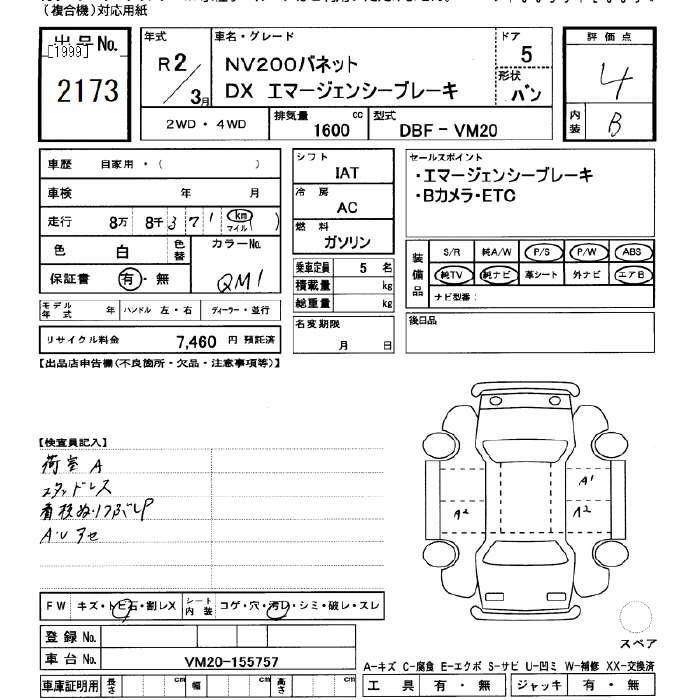 （複合機）対応用紙
出品No.
[1999]
2173
年式 車名・グレード ドア 評価点
R2/3月 NV200バネット 5 4
形状
DX エマージェンシーブレーキ バン
2WD・4WD 排気量 1600 cc 型式 DBF-VM20 内装 B
車歴 自家用・（ ）
車検 年 月
走行 8万 8千 3 7 1 (km マイル)
色 白 色替 カラーNo.
保証書 有・無 QM1
モデル年式 年 ハンドル 左・右 ディーラー・並行
リサイクル料金 7,460 円 預託済
シフト IAT
冷房 AC
燃料 ガソリン
乗車定員 5 名
積載量 kg
総重量 kg
名変期限 月 日
セールスポイント
・エマージェンシーブレーキ
・Bカメラ・ETC
装備品 S/R 純A/W P/S P/W ABS
純TV 純ナビ 革シート 外ナビ エアB
ナビ型番：
後日品
【出品店申告欄(不良箇所・欠品・注意事項等)】
【検査員記入】
荷室 A
スタッドレス
A・U アセ
FW キズ・トビ石・割レX シート内装 コゲ・穴・汚レ・シミ・破レ・スレ
登録 No.
車台 No. VM20-155757
車庫証明用 長さ cm 幅 cm 高さ cm
A1
A2 A2
スペア
A-キズ C-腐食 E-エクボ S-サビ U-凹ミ W-補修 XX-交換済
工具 有・無 ジャッキ 有・無